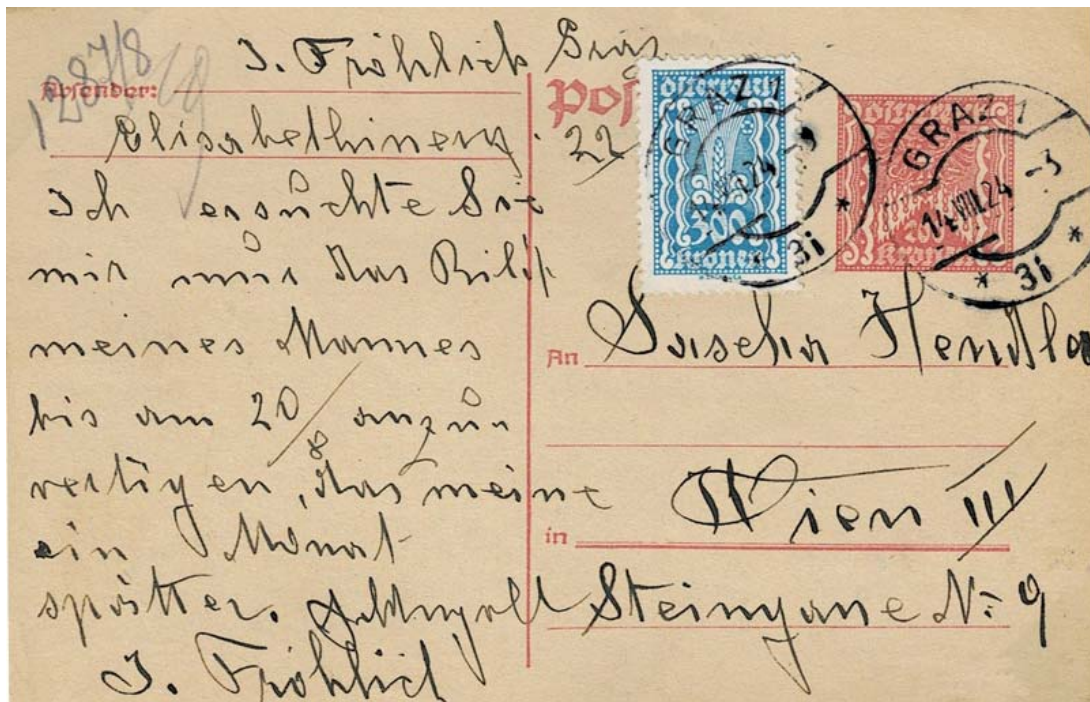 1287/8
J. Fröhlich Graz
Absender:
Elisabethinerg. 22
Ich ersuchte Sie
mir nur das Bild
meines Mannes
bis am 20/8 anzu-
vertigen, das meine
ein Monat
spätter.
J. Fröhlich
Österreich
300
Kronen
Österreich
Kronen
GRAZ 1
14.VIII.24 -3
* 3i *
GRAZ 1
14.VIII.24 -3
* 3i *
An Sascha Hendler
in Wien III
Steingasse No 9